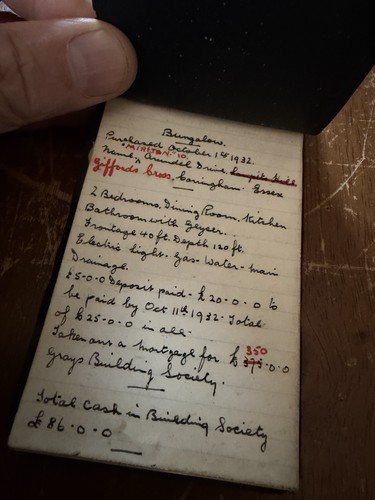 Bungalow.
Purchased October 1st 1932.
"MIRITON" 10.
Name, Arundel Drive
Giffords Cross, Corringham. Essex
2 Bedrooms, Dining Room, Kitchen
Bathroom with Geyser.
Frontage 40 ft. Depth 120 ft.
Electric light. Gas. Water. Main
Drainage.
£5-0-0 Deposit paid - £20-0-0 to
be paid by Oct 11th 1932. Total
of £25-0-0 in all.
Taken out a mortgage for £ 350
375-0-0
Grays Building Society.
Total Cash in Building Society
£86-0-0